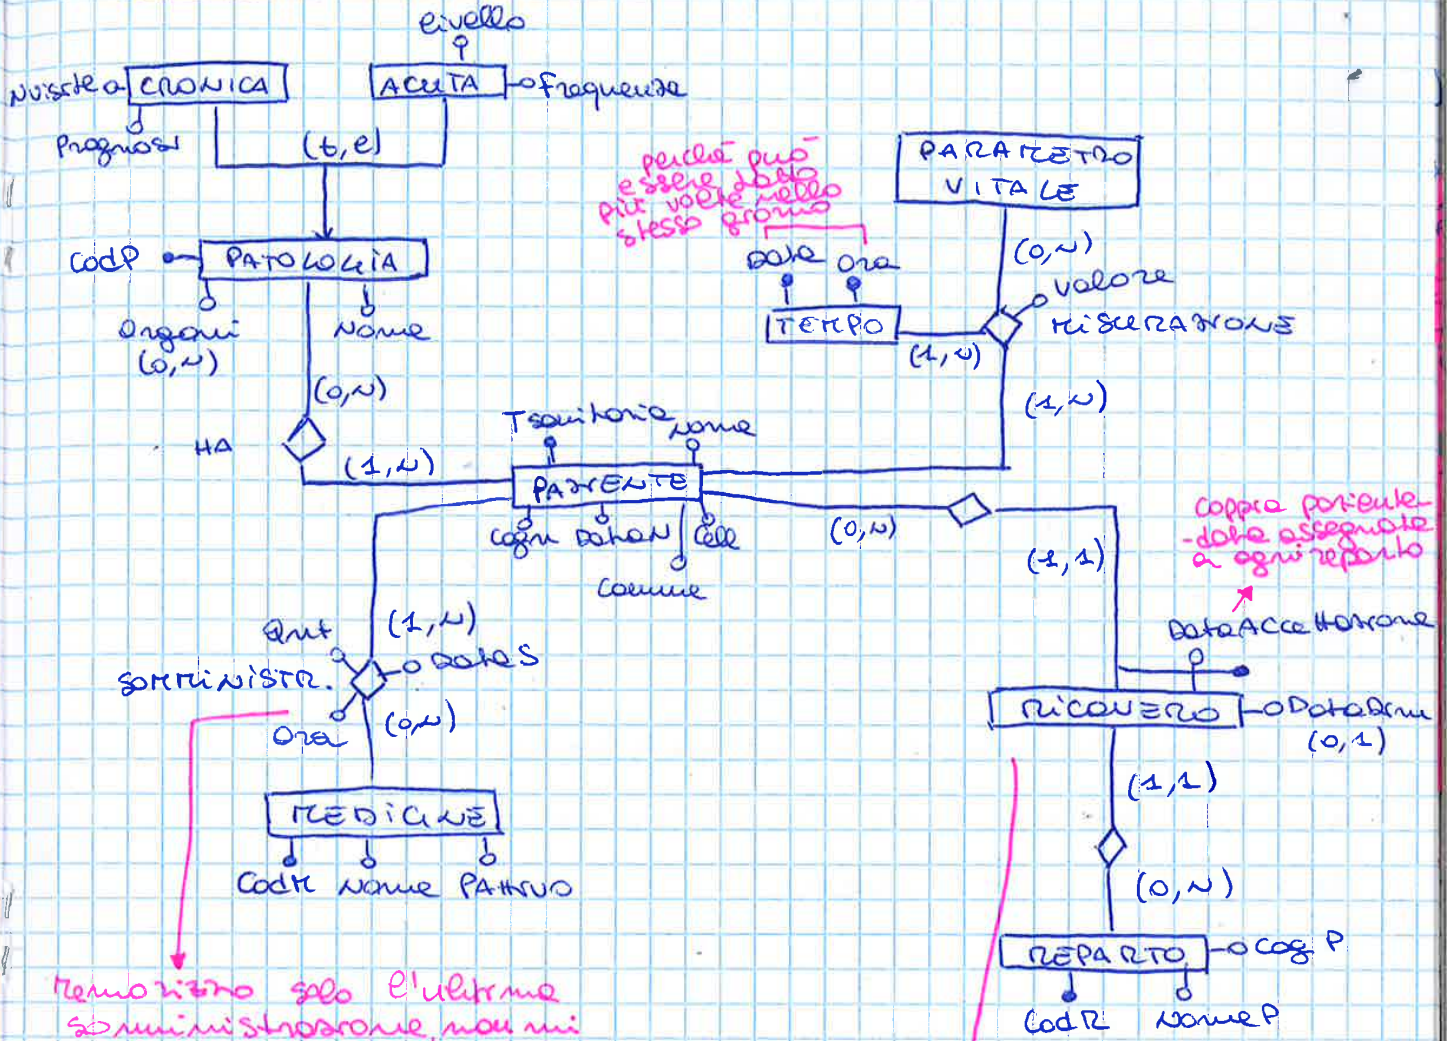 livello
Nvisite
CRONICA
ACUTA
Frequenza
Prognosi
(t,e)
perché può
essere dato
più volte nello
stesso giorno
PARAMETRO
VITALE
CodP
PATOLOGIA
Data
Ora
(0,N)
Valore
Organi
(0,N)
Nome
TEMPO
MISURAZIONE
(1,N)
(0,N)
(1,N)
Tsanitaria
Nome
HA
(1,N)
PAZIENTE
Cogn
DataN
Cell
(0,N)
Comune
coppia paziente
-data assegnata
a ogni reparto
(1,1)
Qnt
(1,N)
DataS
DataAccettazione
SOMMINISTR.
Ora
(0,N)
RICOVERO
DataDim
(0,1)
(1,1)
MEDICINE
CodM
Nome
PAttivo
(0,N)
REPARTO
Cog P
CodR
NomeP
Memorizzo solo l'ultima
somministrazione, non mi